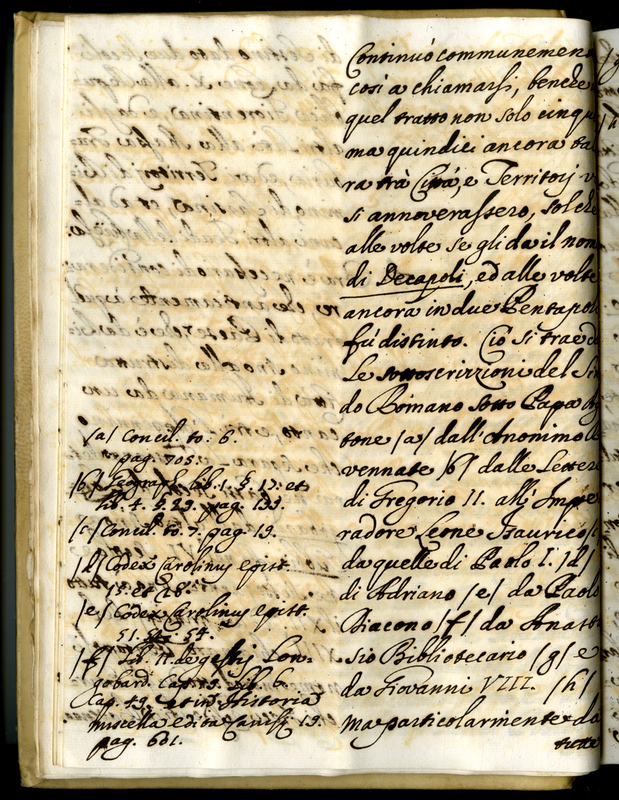 Continuò communemen
così a chiamarsi, benche
quel tratto non solo cinqu
ma quindici ancora ta
ra trà Città, e Territorj v
si annoverassero, sol che
alle volte se gli da il nom
di Decapoli, ed alle volte
ancora in due Pentapoli
fù distinto. Ciò si trae d
Le sottoscrizzioni del Si
do Romano sotto Papa Ag
tone |a| dall' Anonimo
vennate |b| dalle Lettere
di Gregorio II. all' Impe
radore Leone Isaurico |c
da quelle di Paolo I. |d|
di Adriano |e| da Paolo
Diacono |f| da Anast
sio Bibliotecario |g| e
da Giovanni VIII. |h|
ma particolarmente da
tutte
|a| Concil. to. 6.
pag. 705.
|b| Geograph. lib. 1. §. 17. et
lib. 4. §. 29. pag. 199.
|c| Concil. to. 7. pag. 19.
|d| Codex Carolinus epist.
15. et 18.
|e| Codex Carolinus epist.
51. 54.
|f| Lib. II. de gestis Lon-
gobard. Cap. 19. Lib. 6.
Cap. 49. et in Historia
miscella edita 19.
pag. 601.